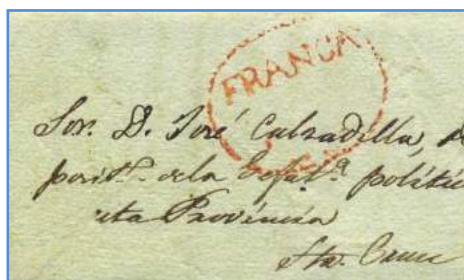 FRANCA
Sor. D. José Calzadilla,
posit.º dela Gefat.ª polític
esta Provincia
Sta. Cruz